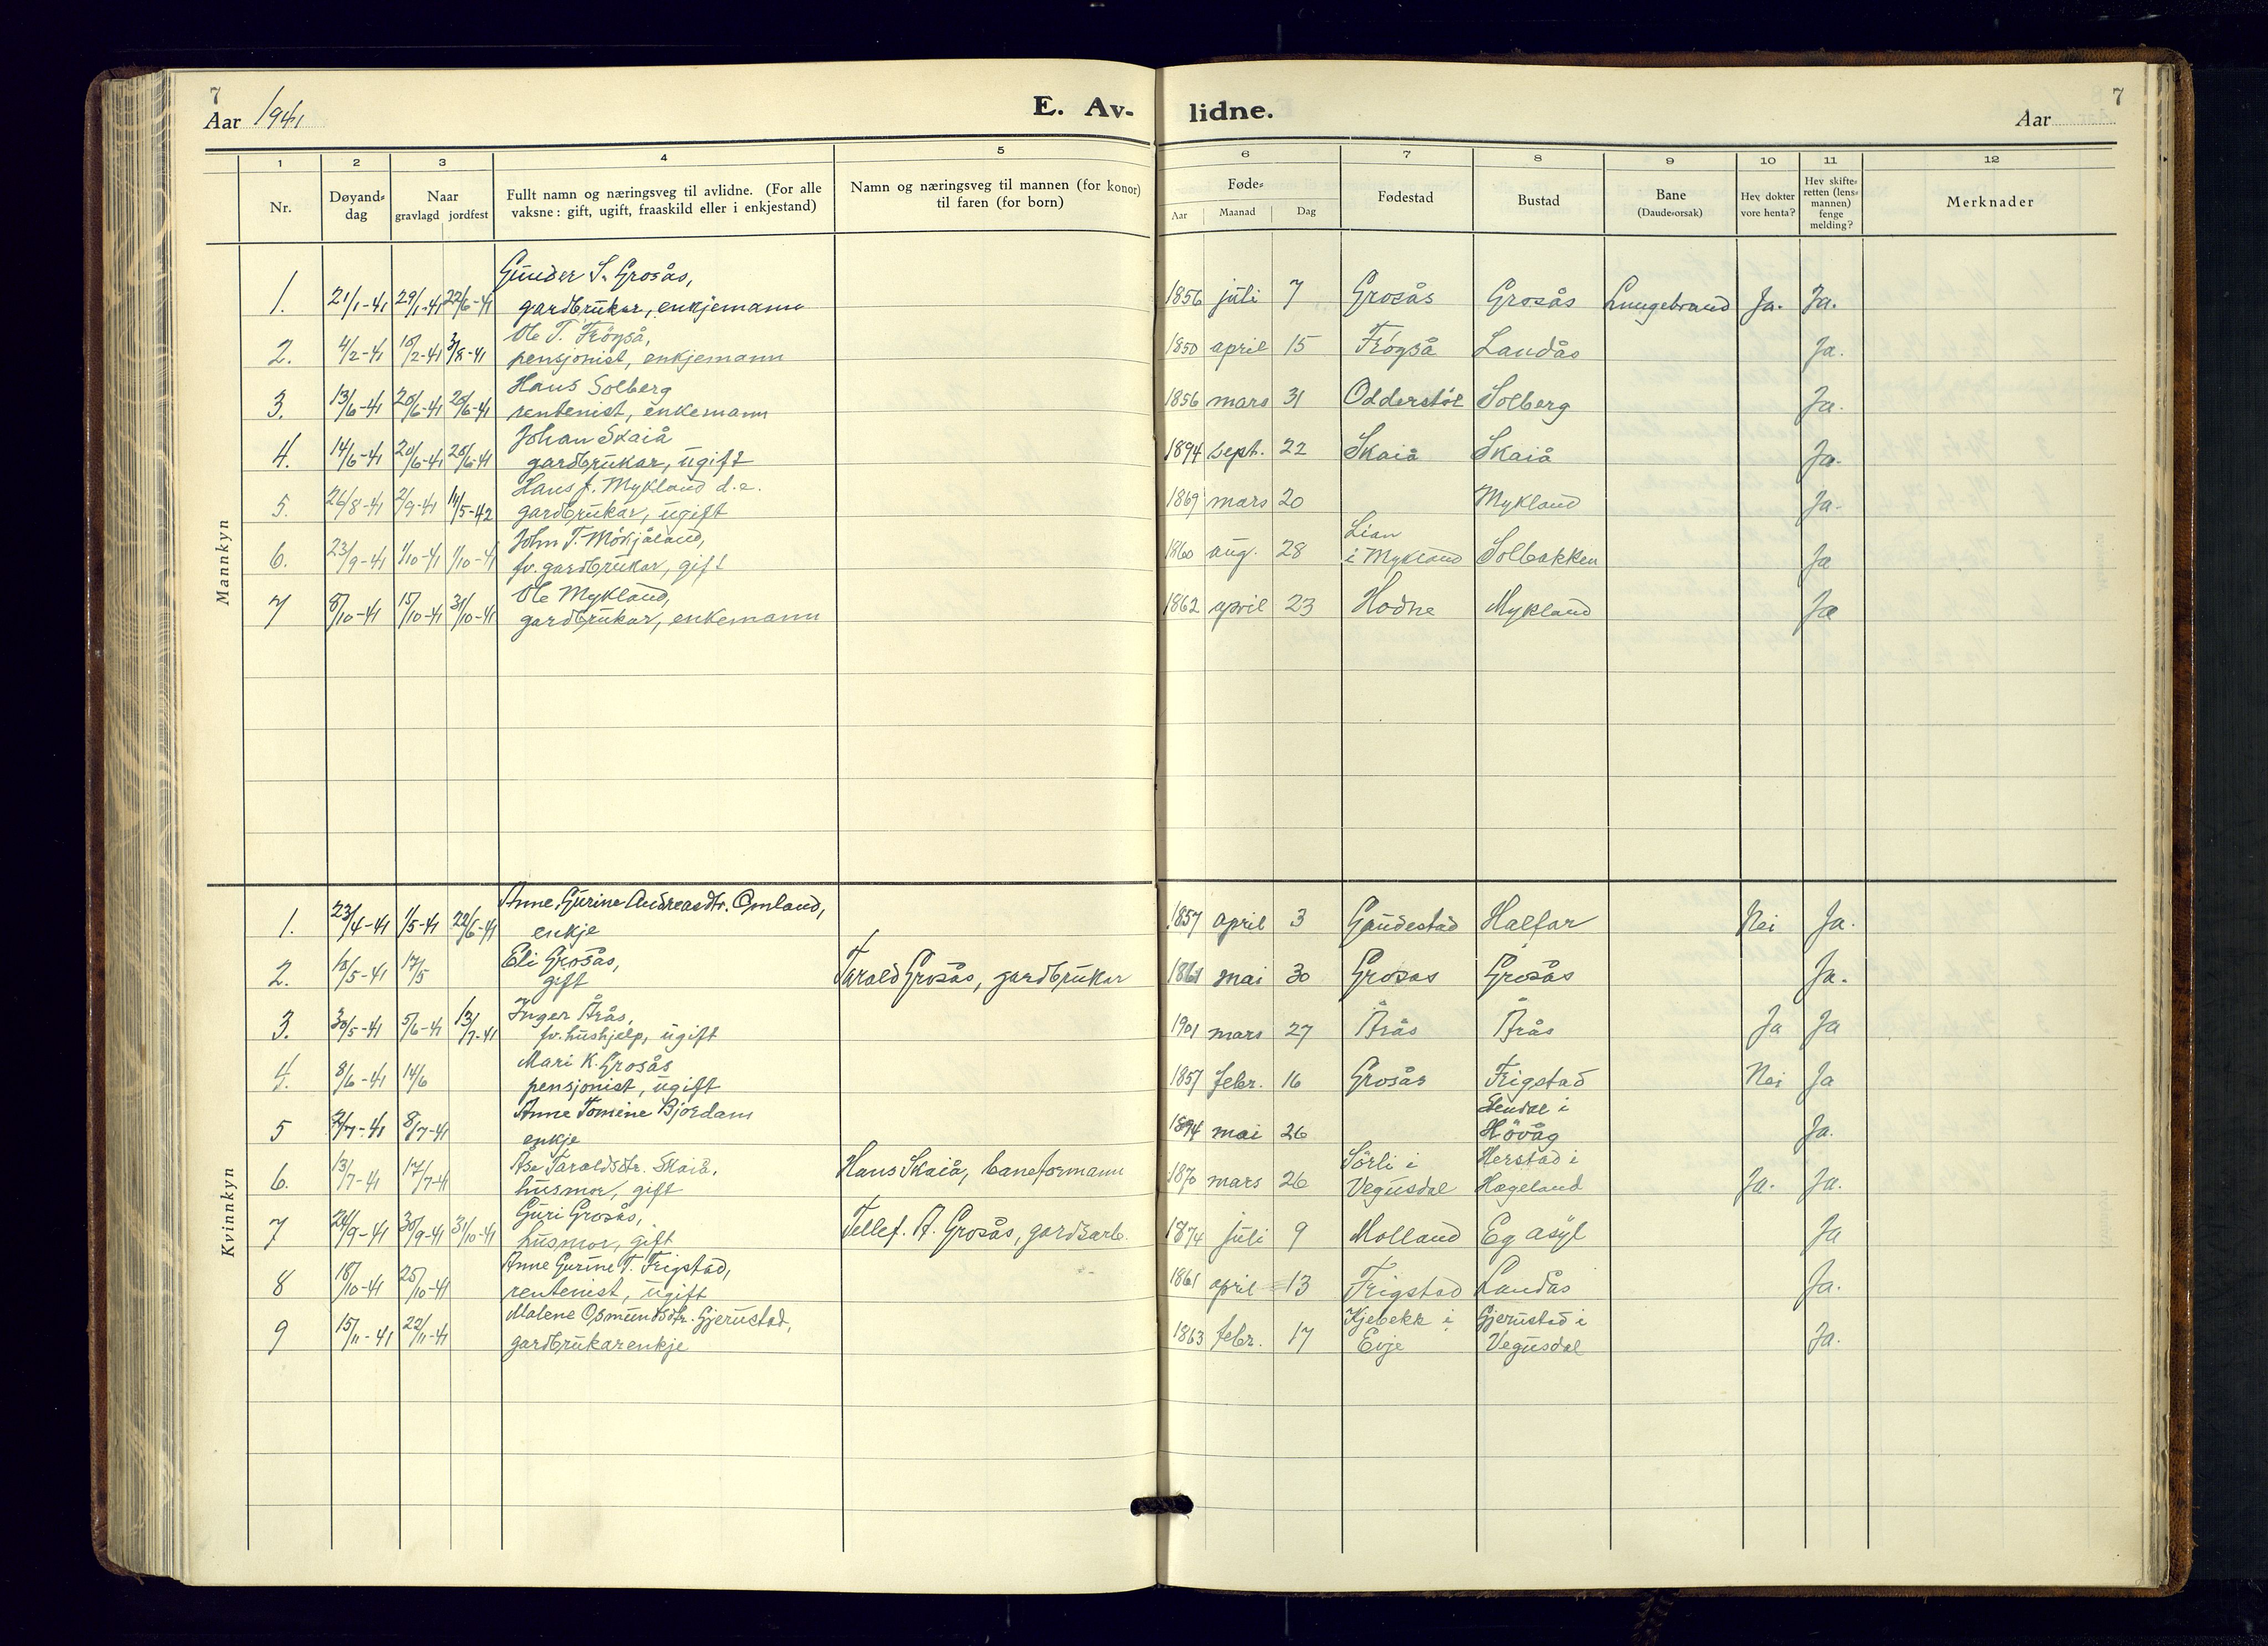 7
Aar 1941
E. Av-
lidne.
7
Aar
1 2 3 4 5 6 7 8 9 10 11 12
Nr.
Døyand-
dag
Naar
gravlagd jordfest
Fullt namn og næringsveg til avlidne. (For alle
vaksne: gift, ugift, fraaskild eller i enkjestand)
Namn og næringsveg til mannen (for konor)
til faren (for born)
Føde-
Aar Maanad Dag
Fødestad
Bustad
Bane
(Daudeorsak)
Hev dokter
vore henta?
Hev skifte-
retten (lens-
mannen)
fenge
melding?
Merknader
Mannkyn
Gunder S. Grosås,
1. 21/1-41 29/1-41 22/6-41 gardbrukar, enkjemann 1856 juli 7 Grosås Grosås Lungebrand Ja. Ja.
Ole T. Frøyså,
2. 4/2-41 10/2-41 3/8-41 pensjonist, enkjemann 1850 april 15 Frøyså Landås Ja.
Hans Solberg
3. 13/6-41 20/6-41 20/6-41 rentenist, enkemann 1856 mars 31 Odderstøl Solberg Ja.
Johan Skaiå
4. 14/6-41 20/6-41 20/6-41 gardbrukar, ugift 1894 sept. 22 Skaiå Skaiå Ja.
Hans J. Mykland d.e.
5. 26/8-41 2/9-41 14/5-42 gardbrukar, ugift 1869 mars 20 Mykland Ja.
John T. Mørjåland,
6. 23/9-41 1/10-41 1/10-41 fv. gardbrukar, gift 1860 aug. 28 Lian
i Mykland Solbakken Ja
Ole Mykland,
7 8/10-41 15/10-41 31/10-41 gardbrukar, enkemann 1862 april 23 Hodne Mykland Ja
Kvinnkyn
Anne Gurine Andreasdtr. Omland,
1. 23/4-41 1/5-41 22/6-41 enkje 1857 april 3 Gaudestad Halfar Nei Ja.
Eli Grosås,
2. 13/5-41 17/5 gift Tarald Grosås, gardbrukar 1861 mai 30 Grosås Grosås Ja.
Inger Årås,
3. 30/5-41 5/6-41 13/7-41 fv. hushjelp, ugift 1901 mars 27 Årås Årås Ja Ja
Mari K. Grosås
4. 8/6-41 14/6 pensjonist, ugift 1857 febr. 16 Grosås Frigstad Nei Ja
Anne Tomine Bjordam
5 2/7-41 8/7-41 enkje 1894 mai 26 i
Høvåg Ja.
Åse Taraldsdtr. Skaiå,
6. 13/7-41 17/7-41 husmor, gift Hans Skaiå, baneformann 1870 mars 26 Sörli i
Vegusdal Herstad i
Hægeland Ja. Ja.
Guri Grosås,
7 24/9-41 30/9-41 31/10-41 husmor, gift Tellef. A. Grosås, gardsarb. 1874 juli 9 Molland Eg asyl Ja
Anne Gurine T. Frigstad,
8 18/10-41 25/10-41 rentenist, ugift 1861 april 13 Frigstad Landås Ja.
Malene Osmundsdtr. Gjerustad,
9 15/11-41 22/11-41 gardbrukarenkje 1863 febr. 17 Kjebekk i
Evje Gjerustad i
Vegusdal Ja.